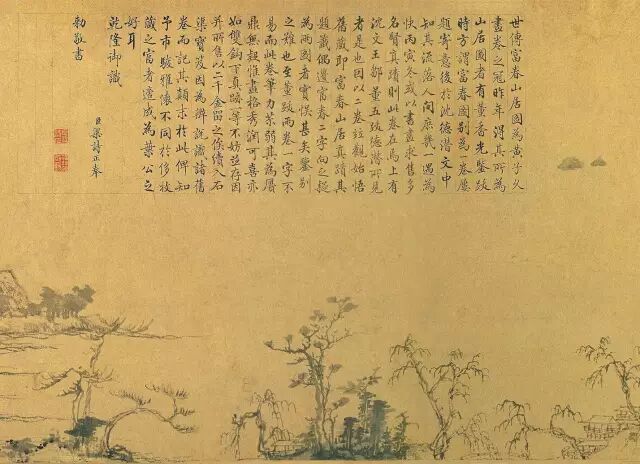 世傳富春山居圖為黃子久
畫卷之冠昨年得其所為
山居圖者有董香光鑒跋
時方謂富春圖別為一卷屢
題寄意後於沈德潛文中
知其流落人間庶幾一遇為
快丙寅冬或以書畫求售多
名賢真蹟則此卷在焉上有
沈文王鄒董五跋德潛所見
者是也因以二卷竝觀始悟
舊藏即富春山居真蹟其
題籤偶遺富春二字向之疑
為兩圖者實悞甚矣鑒別
之難也至董跋兩卷一字不
易而此卷筆力苶弱其為贗
鼎無疑惟畫格秀潤可喜亦
如雙鈎下真蹟一等不妨並存因
并所售以二千金留之俟續入石
渠寶笈因為辨說識諸舊
卷而記其顛末於此俾知
予市駿雅懷不同於侈收
藏之富者遂成為葉公之
好耳
乾隆御識
臣梁詩正奉
勅敬書